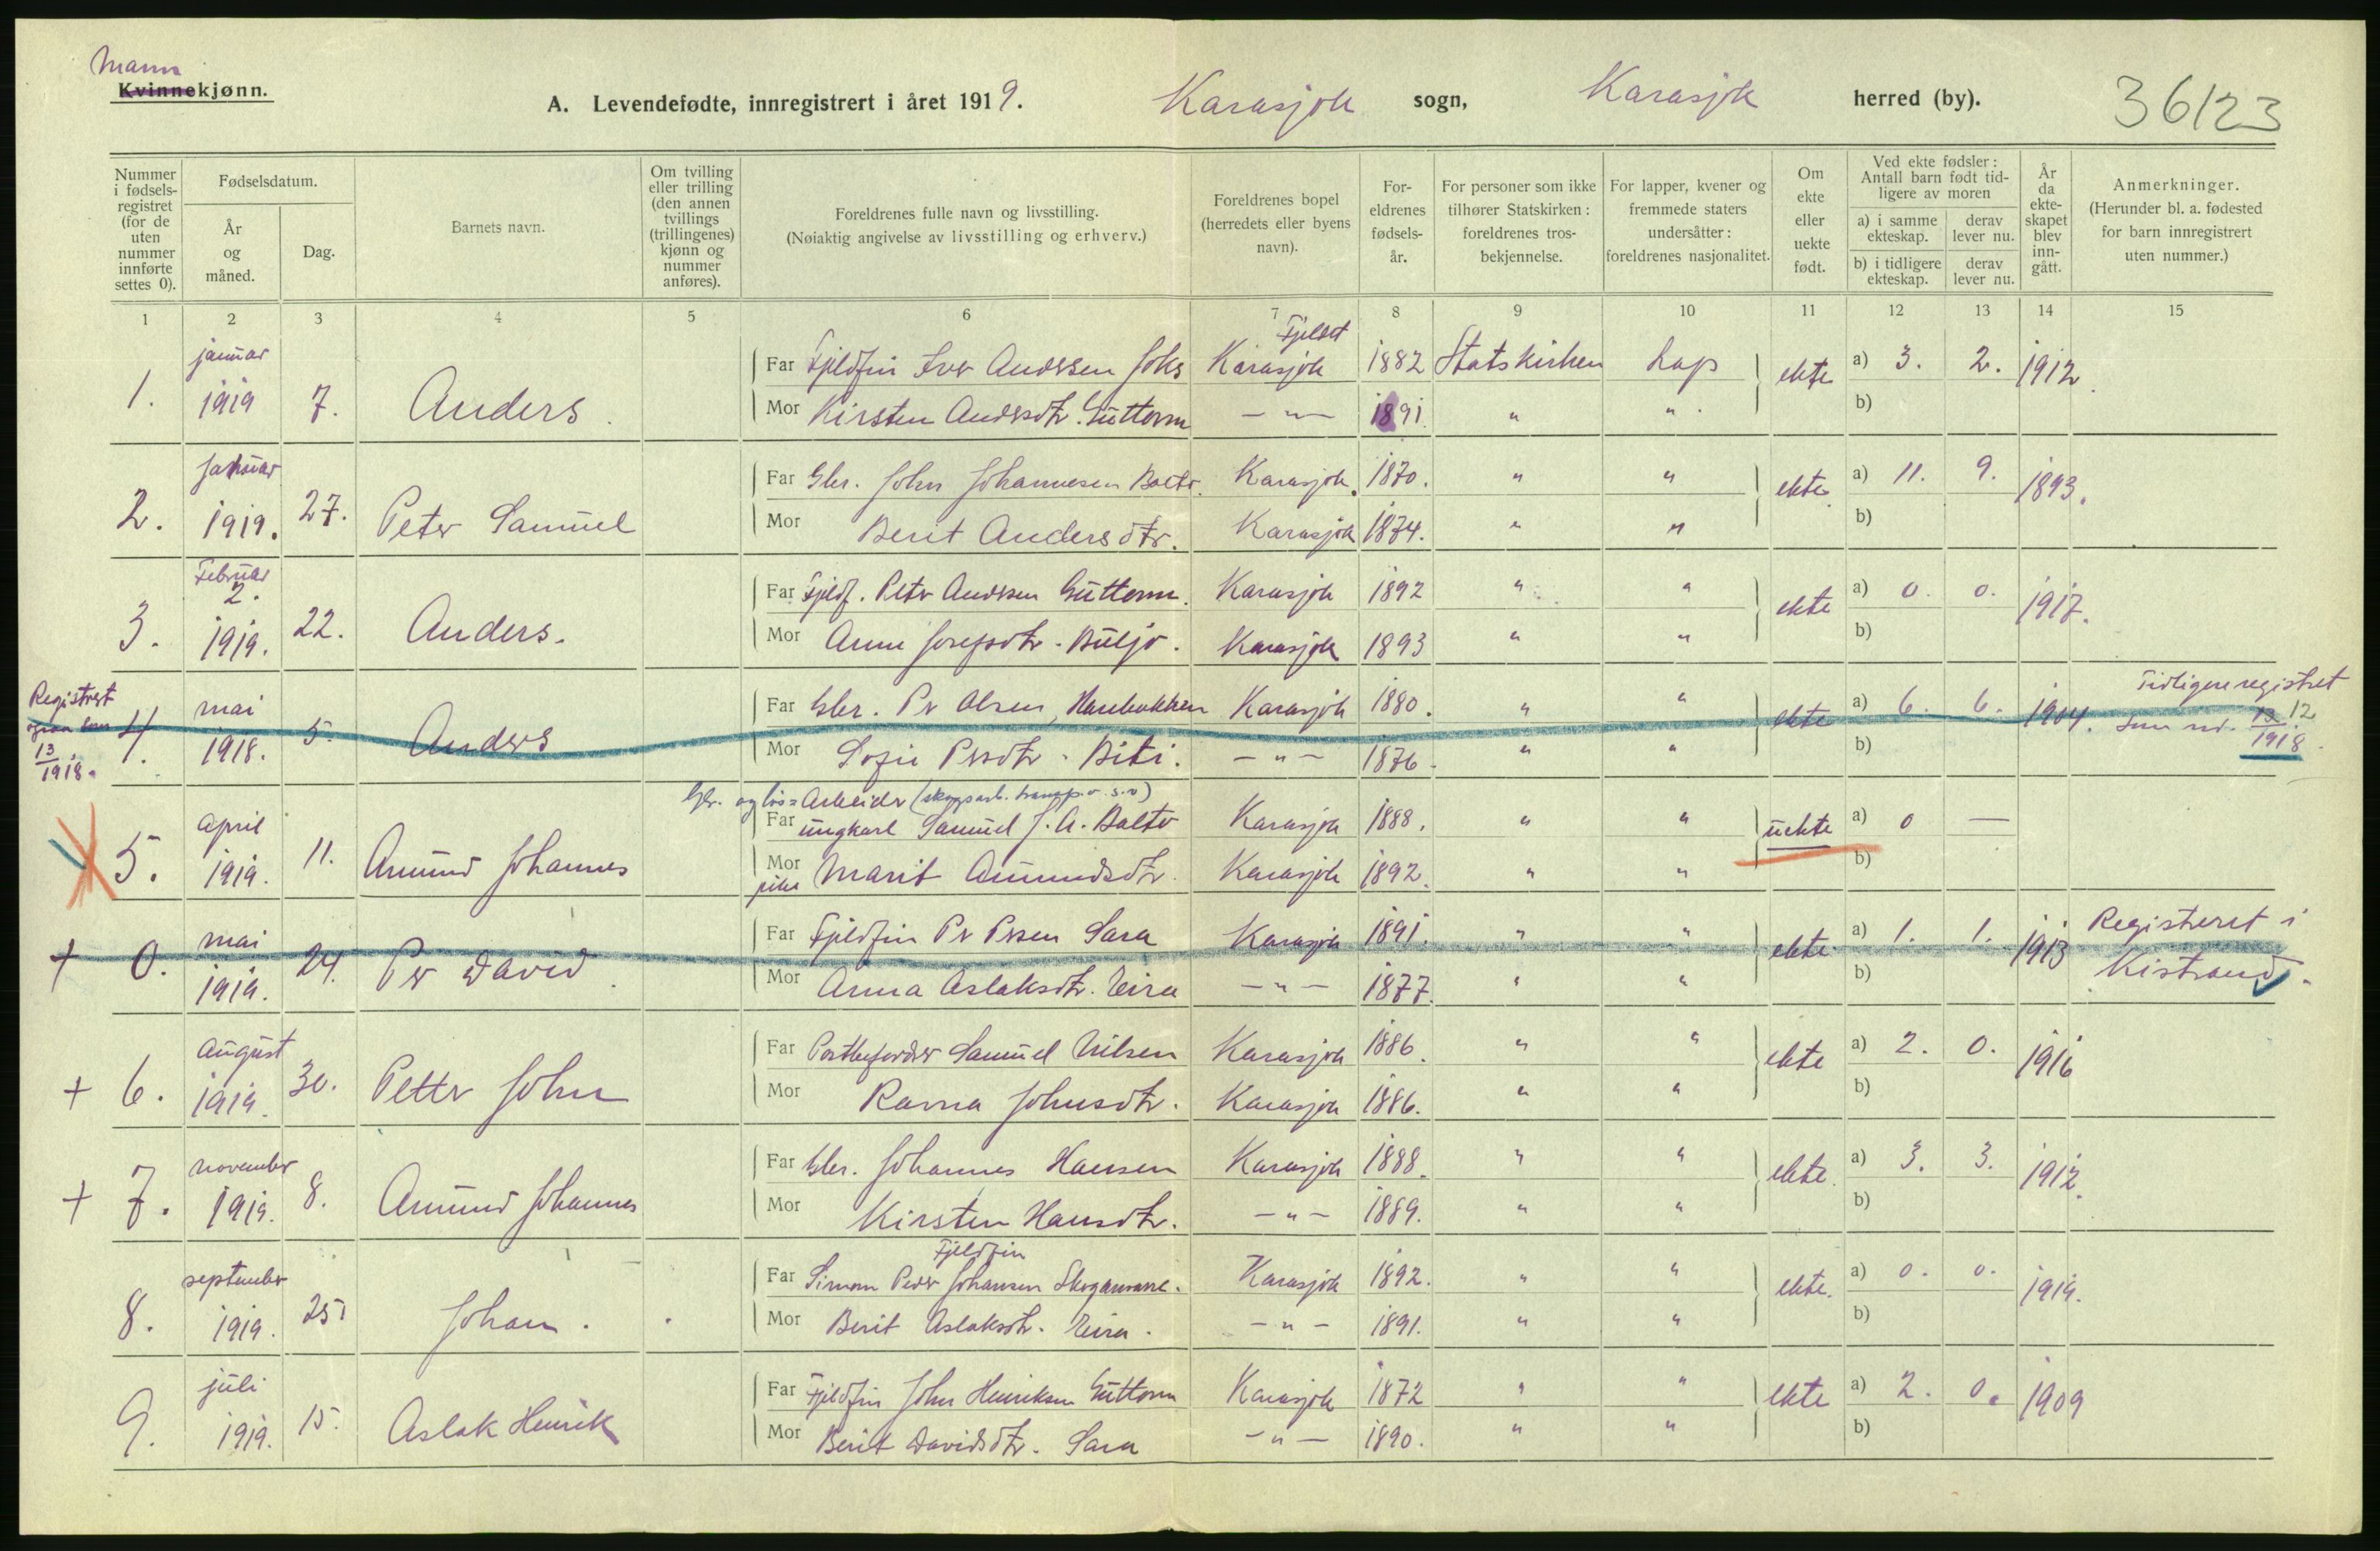 Mann
Kvinnekjønn.
A. Levendefødte, innregistrert i året 1919. Karasjok sogn, Karasjok herred (by). 36123
Nummer i fødsels-registret (for de uten nummer innførte settes 0).
Fødselsdatum.
År og måned.
Dag.
Barnets navn.
Om tvilling eller trilling (den annen tvillings (trillingenes) kjønn og nummer anføres).
Foreldrenes fulle navn og livsstilling.
(Nøiaktig angivelse av livsstilling og erhverv.)
Foreldrenes bopel (herredets eller byens navn).
For-eldrenes fødsels-år.
For personer som ikke tilhører Statskirken: foreldrenes tros-bekjennelse.
For lapper, kvener og fremmede staters undersåtter: foreldrenes nasjonalitet.
Om ekte eller uekte født.
Ved ekte fødsler: Antall barn født tid-ligere av moren
a) i samme ekteskap. derav lever nu.
b) i tidligere ekteskap. derav lever nu.
År da ekte-skapet blev inn-gått.
Anmerkninger.
(Herunder bl. a. fødested for barn innregistrert uten nummer.)
1 2 3 4 5 6 7 8 9 10 11 12 13 14 15
januar Fjeldet
Far Fjeldfin Iver Andersen Joks Karasjok 1882 Statskirken Lap a) 3. 2. 1912
1. 1919 7. Anders. ekte
Mor Kirsten Andersdtr. Guttorm — " — 1891. " " b)
januar
Far Gbr. John Johannesen Balto. Karasjok. 1870. " " a) 11. 9. 1893.
2. 1919. 27. Peter Samuel ekte
Mor Berit Andersdtr. Karasjok 1874. " " b)
Februar
2.
Far Fjeldf. Peter Andersen Guttorm. Karasjok 1892 " " a) 0. 0. 1917.
3. 1919. 22. Anders. ekte
Mor Anne Josefsdtr. Buljo. Karasjok 1893 " " b)
Registrert
mai Far Gbr. Per Olsen, Karasjok 1880. " " a) 6. 6. 1904. Tidligere registret
4. 1918. 5. Anders ekte som nr. 13 12
13
1918.
1918
Mor Sofie Persdtr. Biti. — " — 1876. " " b)
Gbr. og løs=Arbeider (skogsarb. transp. o. s. v)
april Far ungkarl Samuel J. A. Balto Karasjok 1888. " " a) 0 —
5. 1919. 11. Amund Johannes uekte
Mor pike Marit Amundsdtr. Karasjok 1892. " " b)
mai Far Fjeldfin Per Persen Sara Karasjok 1891. " " a) 1. 1. 1913 Registreret i
+ 0. 1919. 24. Per David. ekte Kistrand.
Mor Anna Aslaksdtr. Eira — " — 1877. " " b)
august Far Postbefordrer Samuel Nilsen Karasjok 1886. " " a) 2. 0. 1916
+ 6. 1919. 30. Petter John ekte
Mor Ravna Johnsdtr. Karasjok 1886. " " b)
november Far Gbr. Johannes Hansen Karasjok 1888. " " a) 3. 3. 1912.
+ 7. 1919. 8. Amund Johannes ekte.
Mor Kirsten Hansdtr. — " — 1889. " " b)
Fjeldfin
september Far Simon Peder Johansen Skoganvarre. Karasjok 1892. " " a) 0. 0. 1919.
8. 1919. 25. Johan. ekte.
Mor Berit Aslaksdtr. Eira. — " — 1891. " " b)
juli Far Fjeldfin John Henriksen Guttorm Karasjok 1872 " " a) 2. 0. 1909
9. 1919. 15. Aslak Henrik ekte
Mor Berit Davidsdtr. Sara — " — 1890. " " b)